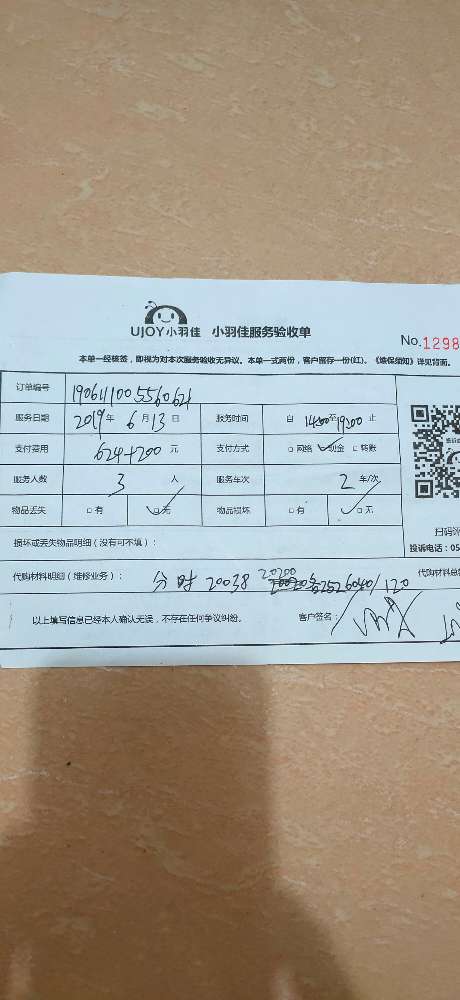 UJOY小羽佳 小羽佳服务验收单
No.1298
本单一经核签，即视为对本次服务验收无异议。本单一式两份，客户留存一份(红)。《维保须知》详见背面。
订单编号 190611005560621
服务日期 2019年 6月13日 服务时间 自 14:00至19:00 止
支付费用 624+200 元 支付方式 □网络 □现金 □转账
服务人数 3 人 服务车次 2 车/次
物品丢失 □有 □无 物品损坏 □有 □无
扫码评
损坏或丢失物品明细（没有可不填）：
投诉电话：05
代购材料明细（维修业务）： 分时 20038 20200 代购材料总
以上填写信息已经本人确认无误，不存在任何争议纠纷。 客户签名：